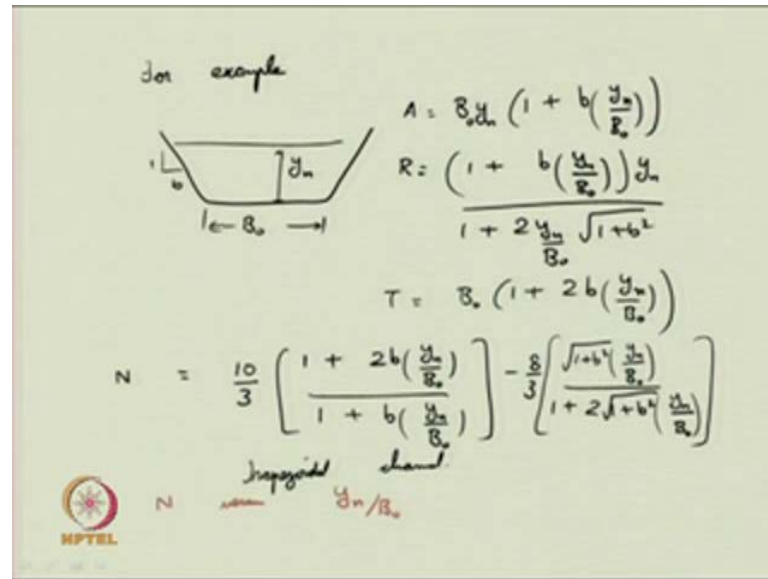 for example
A = B₀yₙ (1 + b(yₙ/B₀))
1
b
yₙ
R = (1 + b(yₙ/B₀))yₙ / 1 + 2 yₙ/B₀ √1+b²
|← B₀ →|
T = B₀ (1 + 2b(yₙ/B₀))
N = 10/3 [1 + 2b(yₙ/B₀) / 1 + b(yₙ/B₀)] - 8/3 [√1+b² (yₙ/B₀) / 1 + 2√1+b² (yₙ/B₀)]
trapezoidal channel.
N versus yₙ/B₀
NPTEL